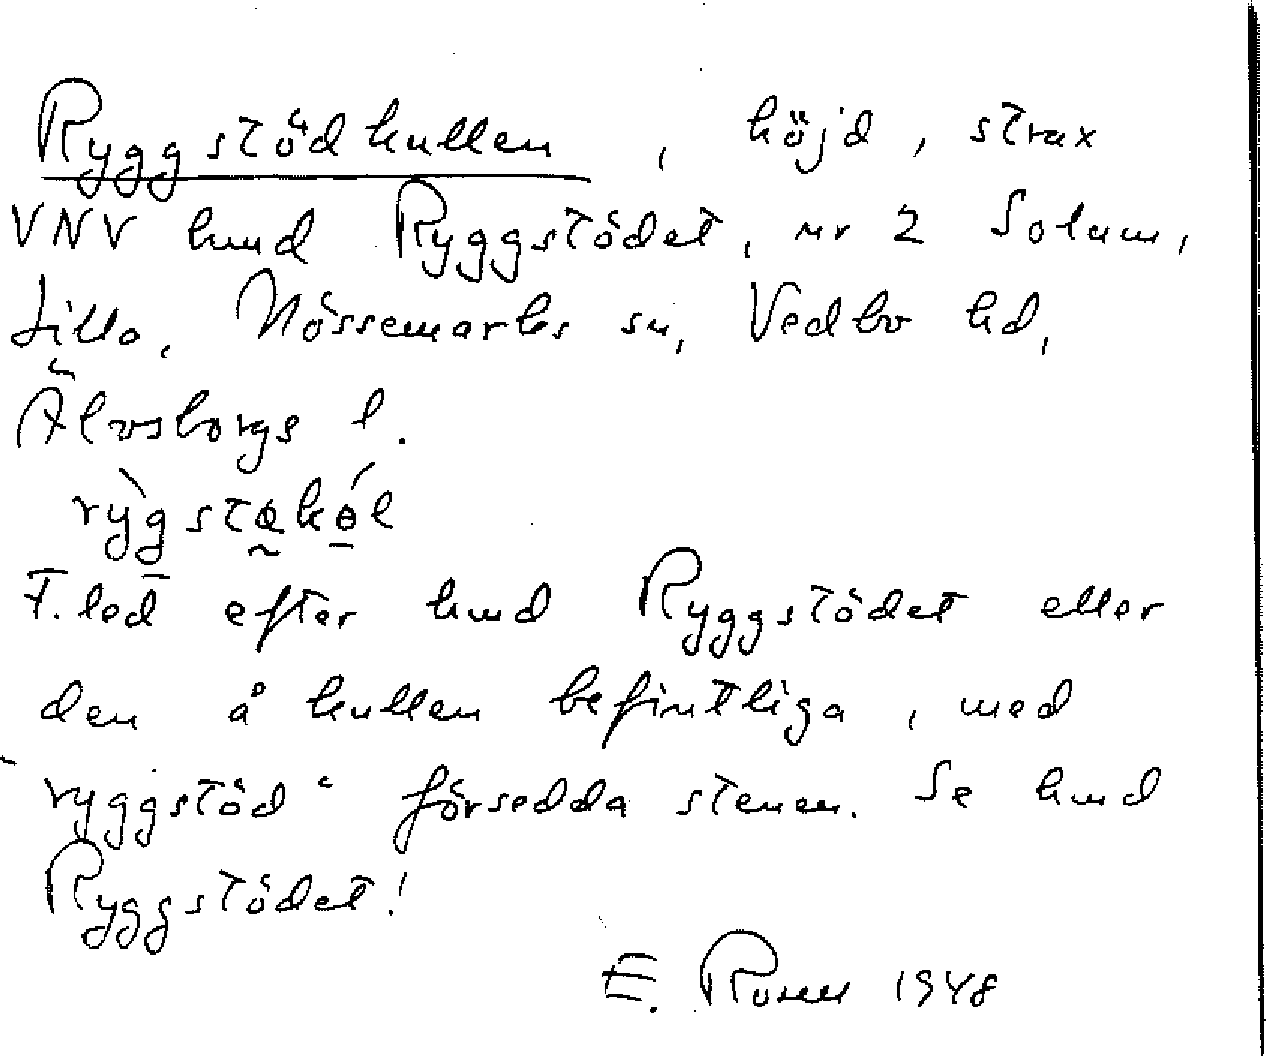 Ryggstödkullen, höjd, strax
VNV hmd Ryggstödet, nr 2 Solum,
Lilla, Nössemarks sn, Vedbo hd,
Älvsborgs l.
F. led efter hmd Ryggstödet eller
den å kullen befintliga, med
"ryggstöd" försedda stenen. Se hmd
Ryggstödet!
E. Rosell 1948